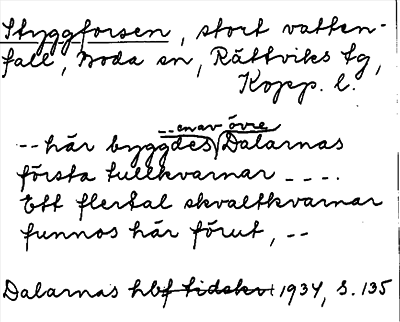 Styggforsen, stort vatten-
fall, Boda sn, Rättviks tg,
Kopp. l.
-- en av övre
-- här byggdes Dalarnas
första tullkvarnar ---.
Ett flertal skvaltkvarnar
funnos här förut, --
Dalarnas hbf tidskr 1934, s. 135